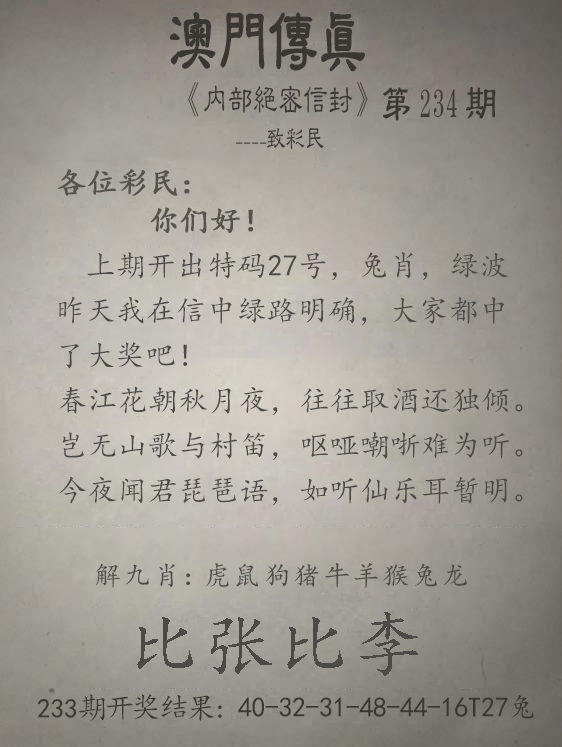 澳門傳眞
《内部絕密信封》第234期
----致彩民
各位彩民：
你们好！
上期开出特码27号，兔肖，绿波
昨天我在信中绿路明确，大家都中
了大奖吧！
春江花朝秋月夜，往往取酒还独倾。
岂无山歌与村笛，呕哑嘲哳难为听。
今夜闻君琵琶语，如听仙乐耳暂明。
解九肖：虎鼠狗猪牛羊猴兔龙
比张比李
233期开奖结果：40-32-31-48-44-16T27兔